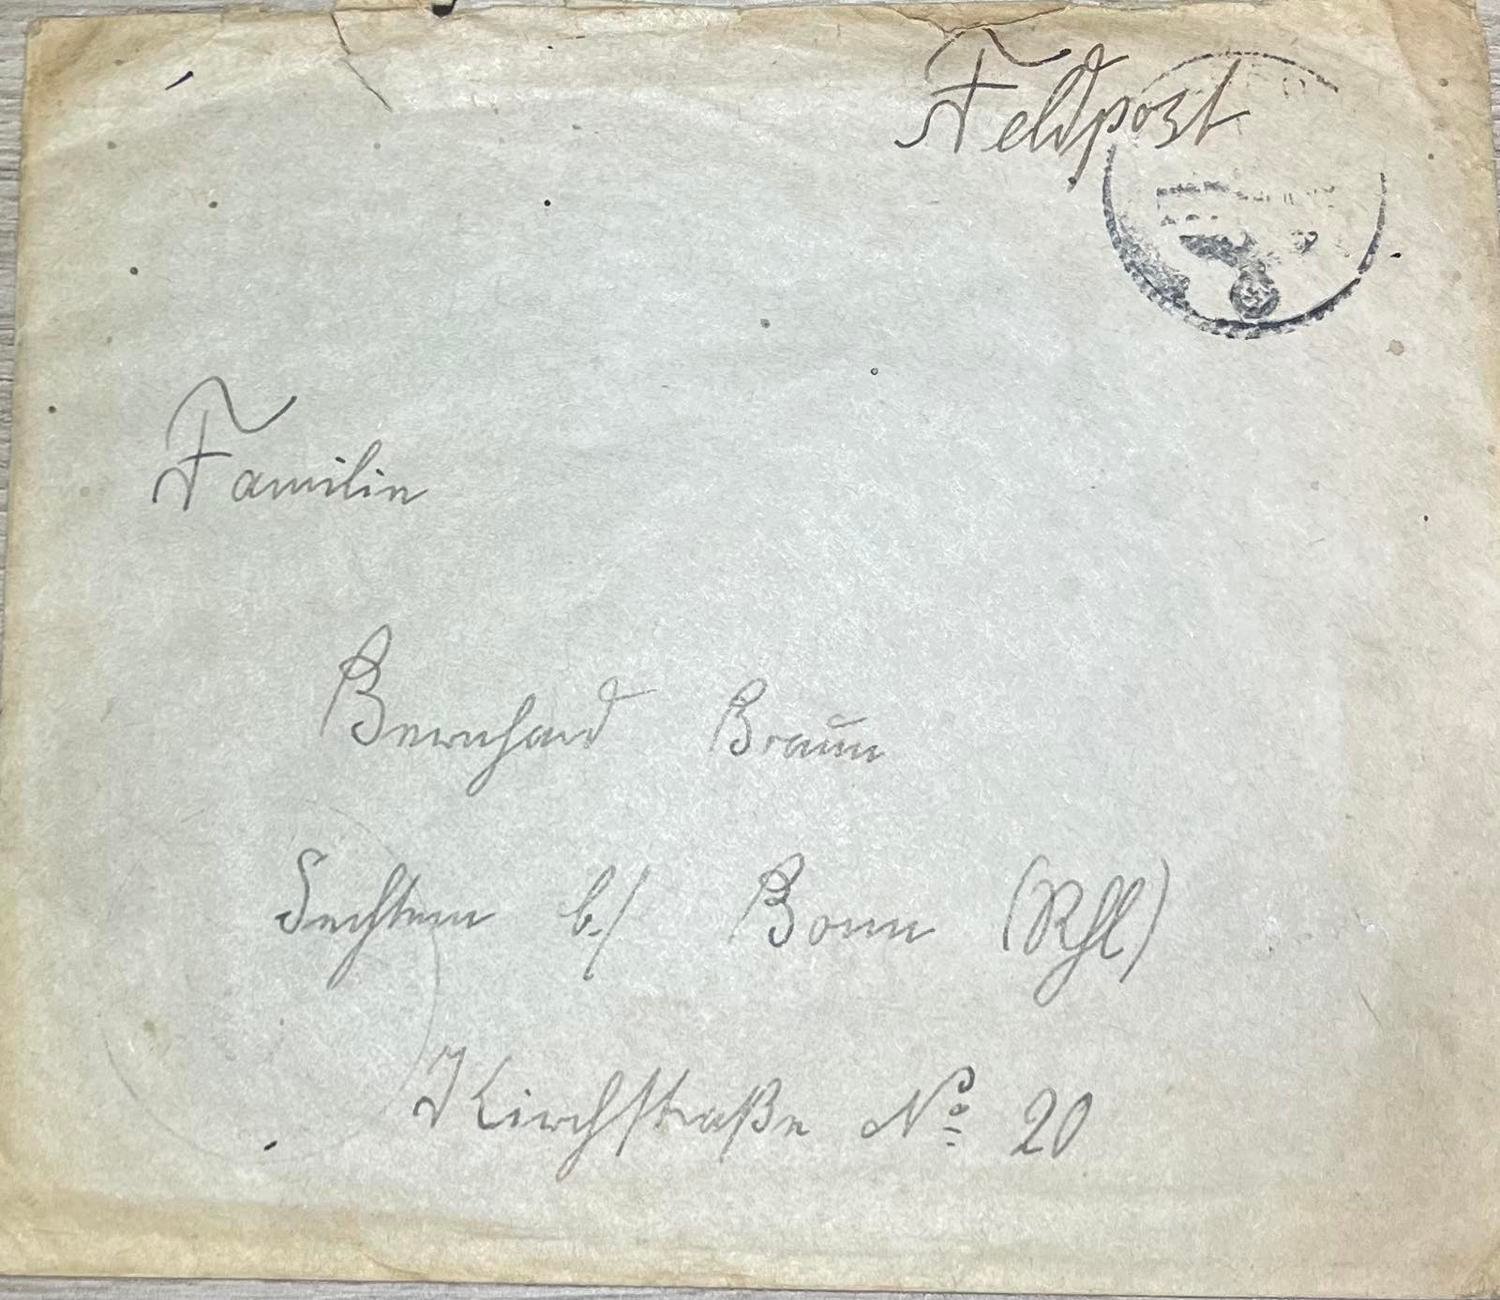 Feldpost
Familie
Bernhard Braun
Sechtem b./ Bonn (Rhl)
Kirchstraße No 20